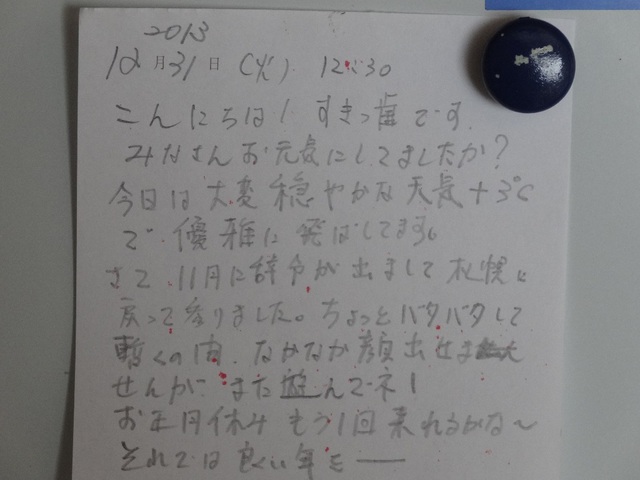 2013
12月31日 (火) 12:30
こんにちは! すきっ歯です.
みなさんお元気にしてましたか?
今日は大変穏やかな天気+3℃
で、優雅に飛ばしてます。
さて、11月に辞令が出まして札幌に
戻って参りました。ちょっとバタバタして
暫くの間、なかなか顔出せま
せんが、また遊んでネ!
お正月休みもう1回来れるかな~
それでは良い年を――